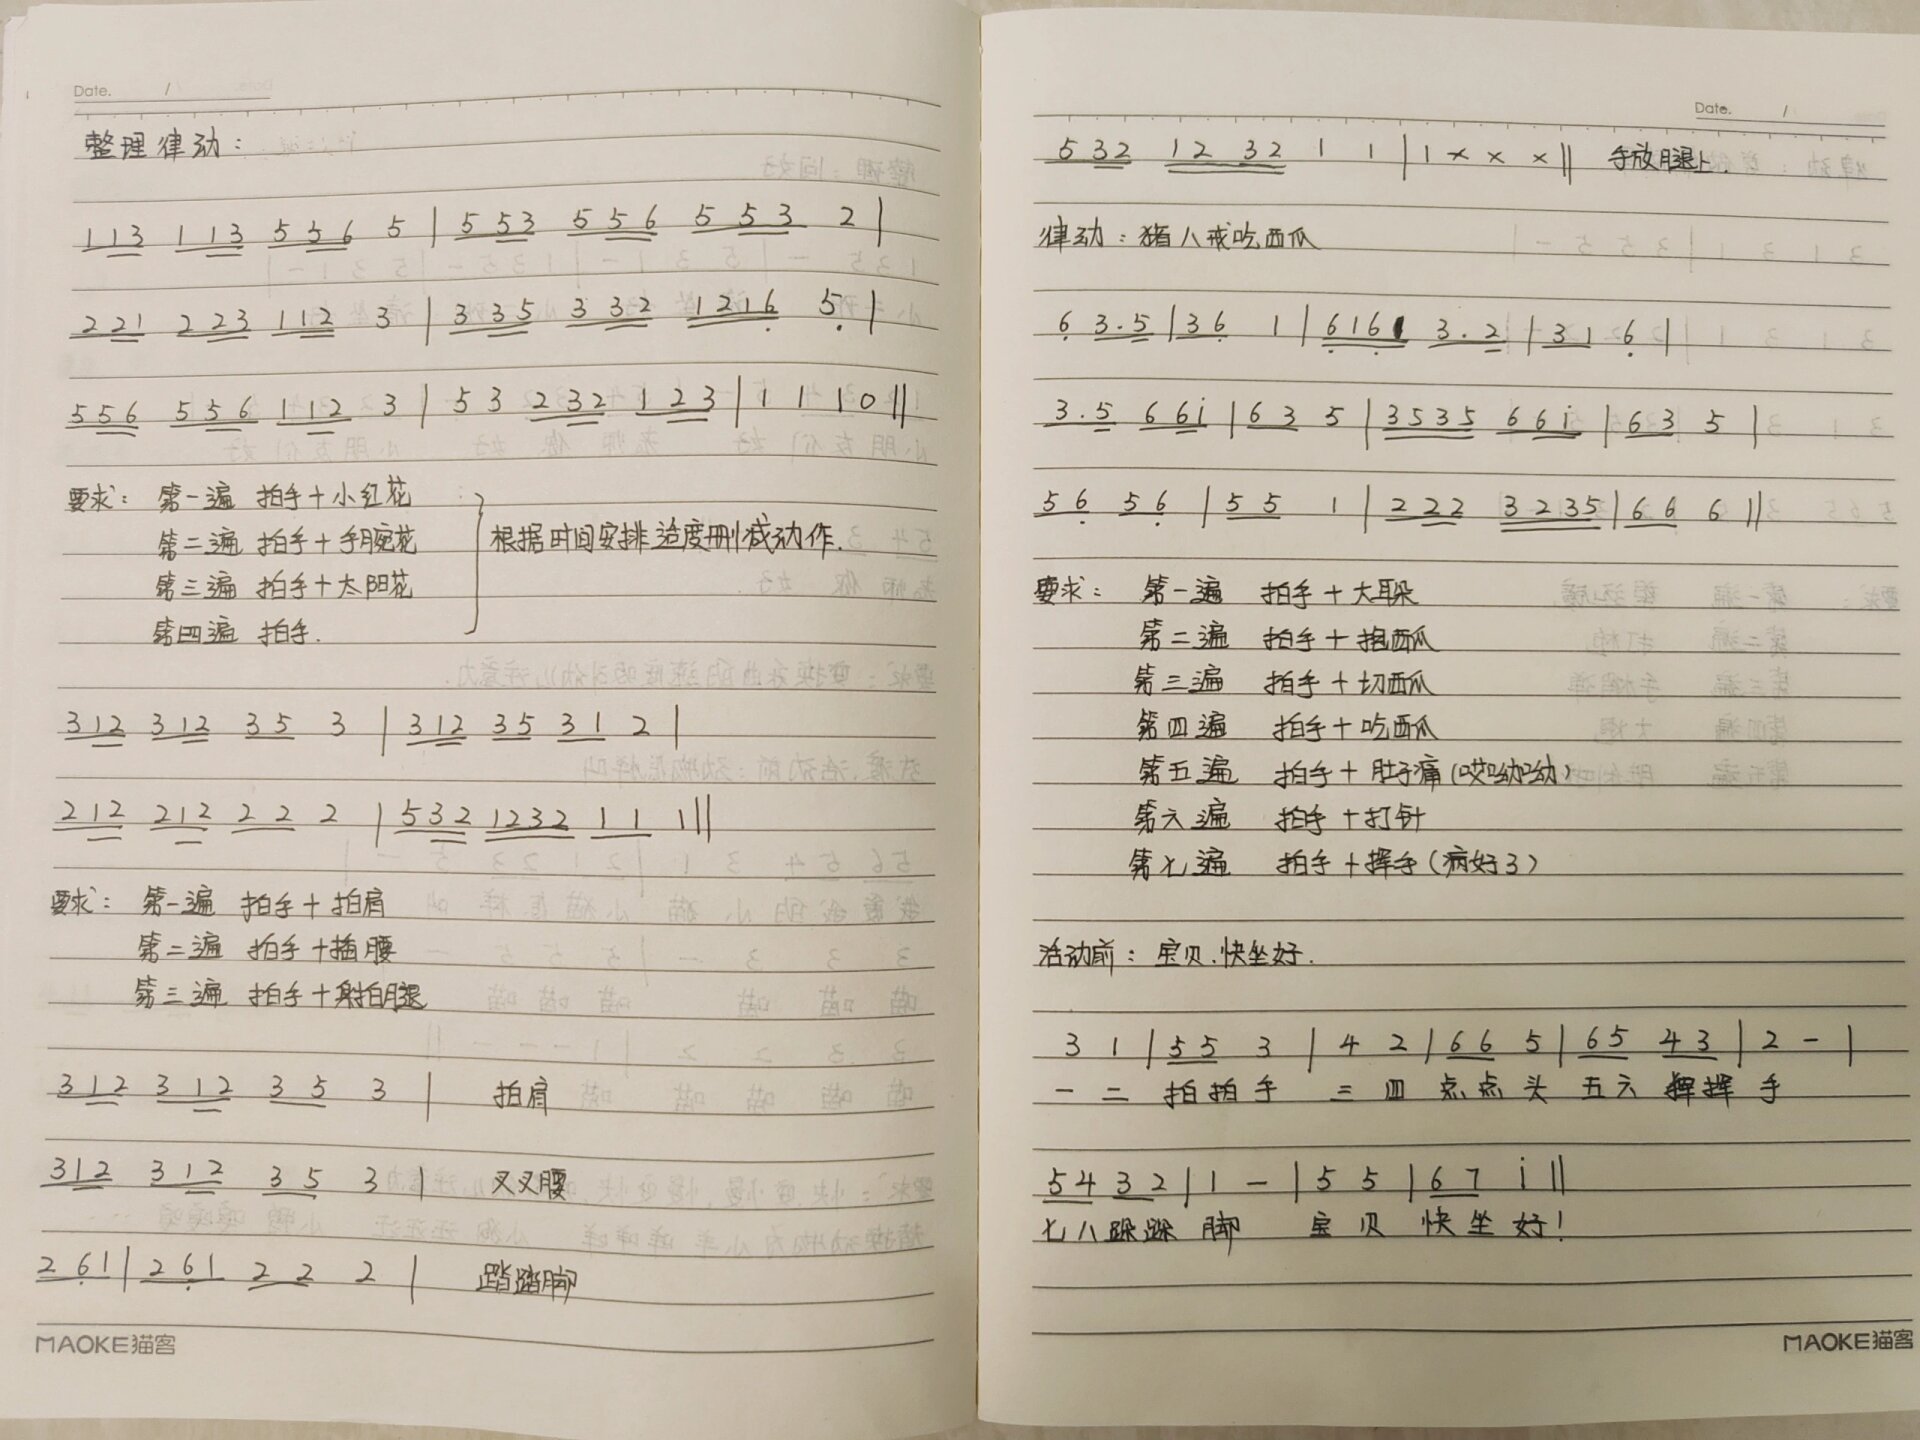 Date. /
整理律动：
113 113 556 5 | 553 556 553 2 |
221 223 112 3 | 335 332 1216 5 |
556 556 112 3 | 53 232 123 | 1 1 1 0 ||
要求： 第一遍 拍手+小红花
第二遍 拍手+手腕花
第三遍 拍手+太阳花
第四遍 拍手.
根据时间安排适度删减动作.
312 312 35 3 | 312 35 31 2 |
212 212 22 2 | 532 1232 11 1 ||
要求： 第一遍 拍手+拍肩
第二遍 拍手+插腰
第三遍 拍手+拍腿
312 312 35 3 | 拍肩
312 312 35 3 | 叉叉腰
261 | 261 22 2 | 踏踏脚
MAOKE猫客
Date. /
532 12 32 1 1 | 1 × × × || 手放腿上.
律动：猪八戒吃西瓜
6 3.5 | 36 1 | 6161 3.2 | 31 6 |
3.5 661̇ | 63 5 | 3535 661̇ | 63 5 |
56 56 | 55 1 | 222 3235 | 66 6 ||
要求： 第一遍 拍手+大耳朵
第二遍 拍手+抱西瓜
第三遍 拍手+切西瓜
第四遍 拍手+吃西瓜
第五遍 拍手+肚子痛(哎呦呦)
第六遍 拍手+打针
第七遍 拍手+挥手(病好了)
活动前：宝贝.快坐好.
3 1 | 55 3 | 4 2 | 66 5 | 65 43 | 2 - |
一 二 拍拍手 三 四 点点头 五六 挥挥手
54 32 | 1 - | 5 5 | 67 1̇ ||
七八跺跺 脚 宝 贝 快 坐 好！
MAOKE猫客